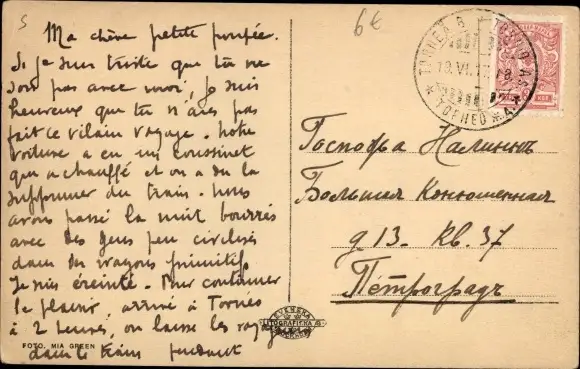 5
6€
Ma chère petite poupée.
Si je suis triste que tu ne
sois pas avec moi, je suis
heureuse que tu n'aies pas
fait ce vilain voyage. Notre
voiture a eu un coussinet
qui a chauffé et on a dû la
supprimer du train. Nous
avons passé la nuit bourrés
avec des gens peu civilisés
dans des wagons primitifs
Je suis éreintée. Pour continuer
le plaisir, arrivé à Tornea
à 2 heures, on laisse les voyageurs
dans le train pendant
FOTO. MIA GREEN
SVENSKA
LITOGRAFISKA
TORNEÅ
TORNIO
19.VI.
ТОРНЕО
КОП
Госпожа Налинне
Большая Конюшенная
д 13. кв. 37
Петроградъ